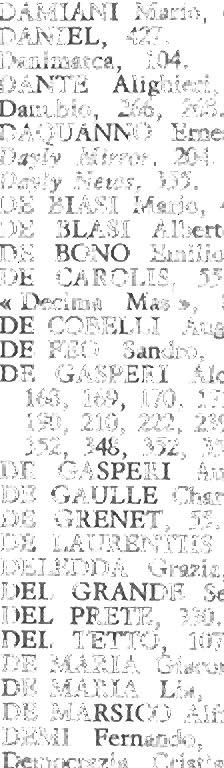 DAMIANI Mario,
DANIEL, 427.
Danimarca, 104.
DANTE Alighieri,
Danubio, 266,
DAQUANNO
Dayly Mirror, 204.
Dayly News, 355.
DE BIASI Mario,
DE BLASI Albert
DE BONO Emilio
DE CAROLIS, 55
« Decima Mas »,
DE CORELLI Aug
DE FEO Sandro,
DE GASPERI Alc
168, 169, 170,
190, 210, 222, 239
348, 352,
DE GASPERI
DE GAULLE Char
DE GRENET, 55
DE LAURENTIIS
DELEDDA Grazia
DEL GRANDE Se
DEL PRETE,
DEL TETTO, 107
DE MARIA
DE MARIA Lia,
DE MARSICO Alf
DEMI Fernando,
Democrazia Cristia